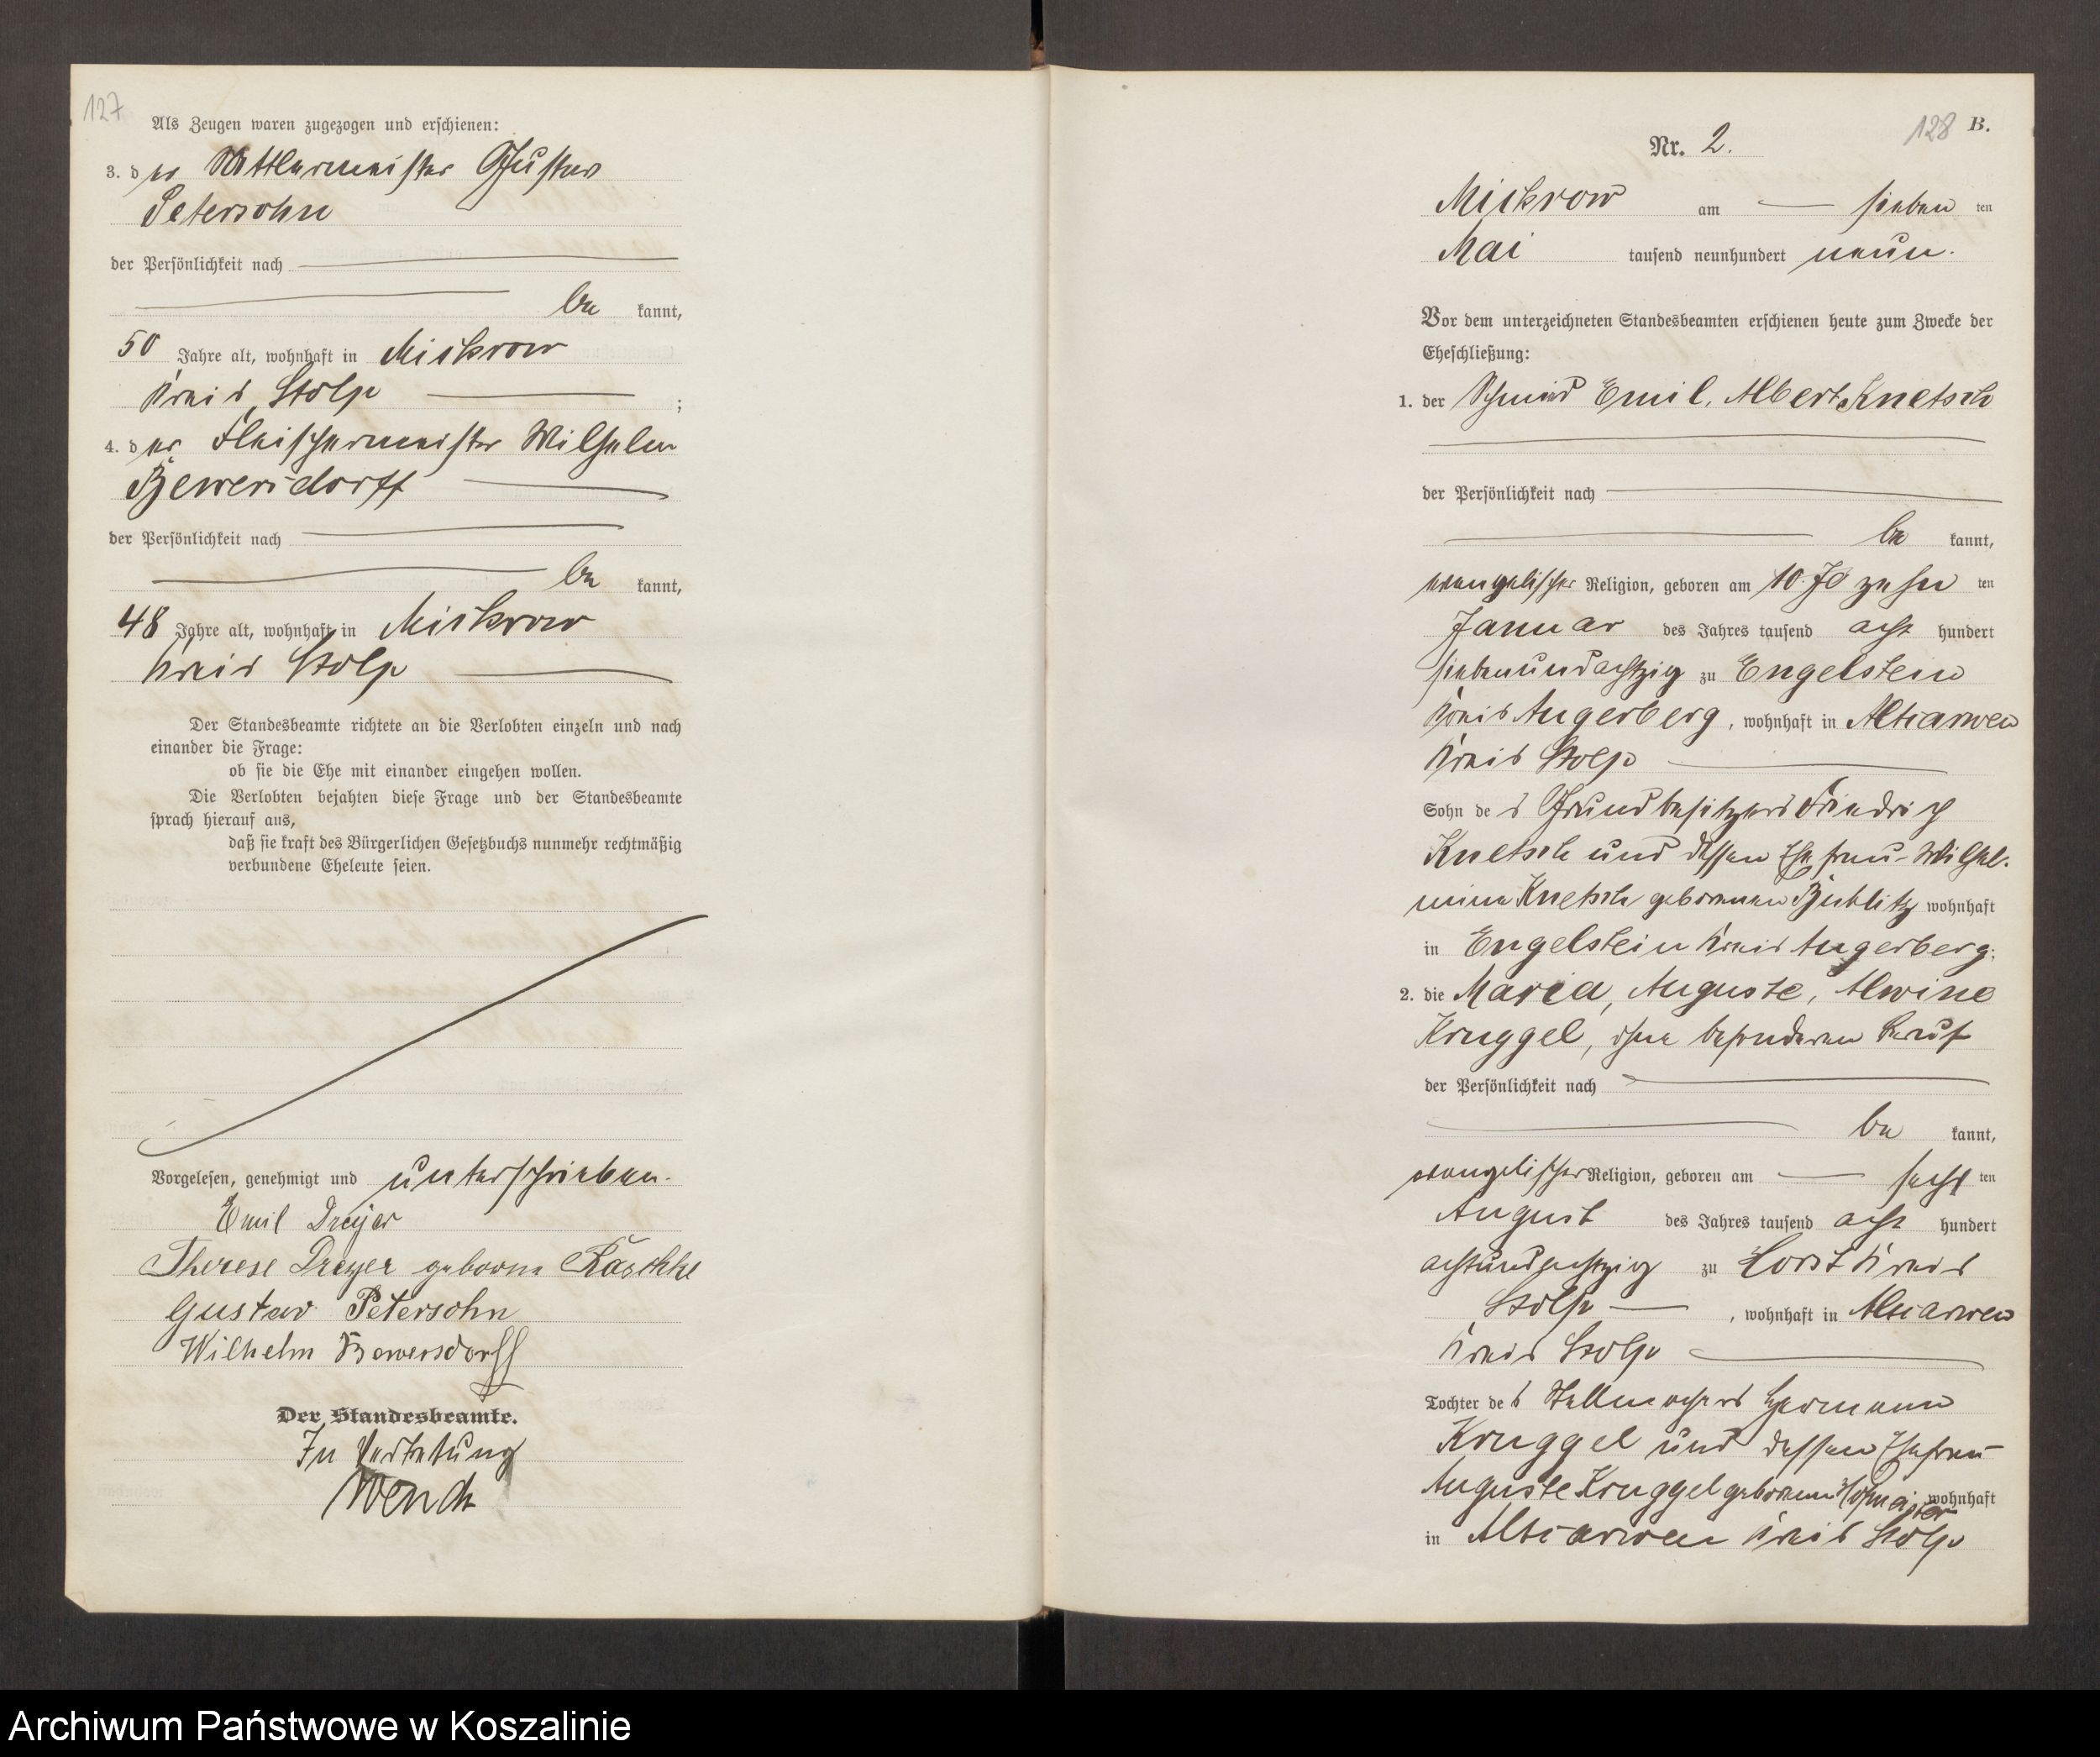 127
Als Zeugen waren zugezogen und erschienen:
3. der Sattlermeister Gustav
Petersohn
der Persönlichkeit nach
be kannt,
50 Jahre alt, wohnhaft in Mickrow
Kreis Stolp ;
4. der Fleischermeister Wilhelm
Bewersdorff
der Persönlichkeit nach
be kannt,
48 Jahre alt, wohnhaft in Mickrow
Kreis Stolp
Der Standesbeamte richtete an die Verlobten einzeln und nach
einander die Frage:
ob sie die Ehe mit einander eingehen wollen.
Die Verlobten bejahten diese Frage und der Standesbeamte
sprach hierauf aus,
daß sie kraft des Bürgerlichen Gesetzbuchs nunmehr rechtmäßig
verbundene Eheleute seien.
Vorgelesen, genehmigt und unterschrieben.
Emil Dreyer
Therese Dreyer geborne Räschke
Gustav Petersohn
Wilhelm Bewersdorff
Der Standesbeamte.
In Vertretung
Wendt
128 B.
Nr. 2.
Mickrow am sieben ten
Mai tausend neunhundert neun.
Vor dem unterzeichneten Standesbeamten erschienen heute zum Zwecke der
Eheschließung:
1. der Schmied Emil, Albert Knetsch
der Persönlichkeit nach
be kannt,
evangelischer Religion, geboren am zehn ten
Januar des Jahres tausend acht hundert
siebenundachtzig zu Engelstein
Kreis Angerberg, wohnhaft in Altjarwen
Kreis Stolp
Sohn des Grundbesitzers Friedrich
Knetsch und dessen Ehefrau Wilhel-
mine Knetsch geborenen wohnhaft
in Engelstein Kreis Angerberg;
2. die Maria, Auguste, Alwine
Kruggel, ohne besonderen Beruf
der Persönlichkeit nach
be kannt,
evangelischer Religion, geboren am sechs ten
August des Jahres tausend acht hundert
achtundachtzig zu Horst Kreis
Stolp, wohnhaft in Altjarwen
Kreis Stolp
Tochter des Stellmachers Hermann
Kruggel und dessen Ehefrau
Auguste Kruggel geborenen Hofmeister wohnhaft
in Altjarwen Kreis Stolp
Archiwum Państwowe w Koszalinie